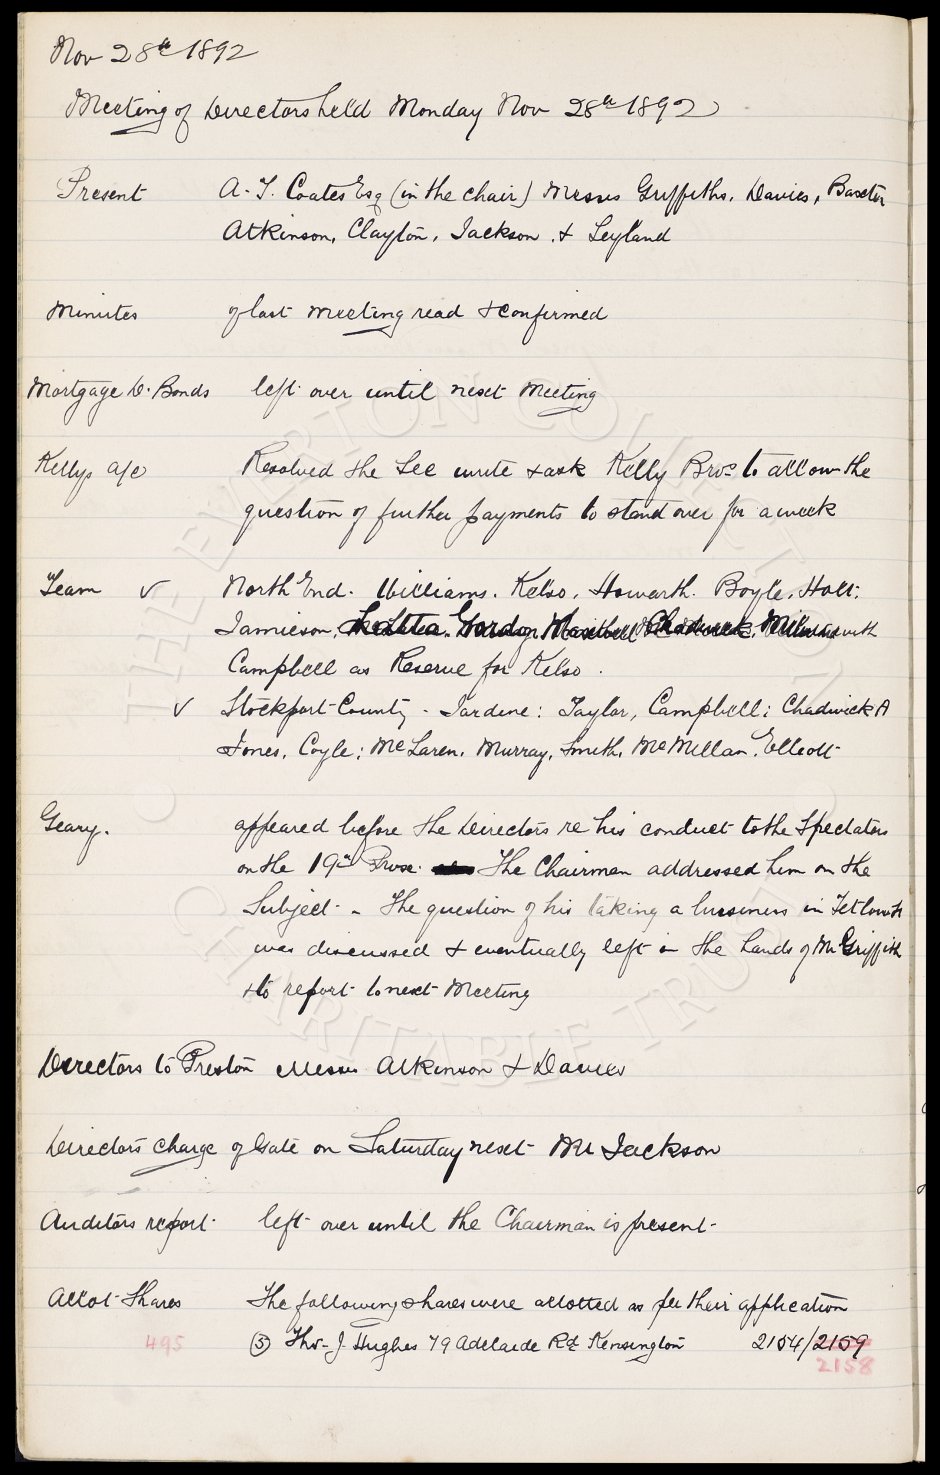 Nov 28th 1892
Meeting of Directors held Monday Nov 28th 1892
Present A. T. Coates Esq (in the chair) Messrs Griffiths. Davies, Baxter
Atkinson, Clayton, Jackson, & Leyland
Minutes of last meeting read & confirmed
Mortgage D. Bonds left over until next Meeting
Kellys a/c Resolved the Sec write & ask Kelly Bros to allow the
question of further payments to stand over for a week
Team ✓ North End. Williams. Kelso, Howarth. Boyle, Holt:
Jamieson, Latta. Gordon, Maxwell, Chadwick, Milward with
Campbell as Reserve for Kelso.
✓ Stockport County - Jardine: Taylor, Campbell; Chadwick A
Jones, Coyle; McLaren. Murray, Smith, McMillan. Elliott
Geary. appeared before the Directors re his conduct to the Spectators
on the 19th Prox. The Chairman addressed him on the
Subject - The question of his taking a business in
was discussed & eventually left in the hands of Mr Griffith
to report to next Meeting
Directors to Preston Messrs Atkinson & Davies
Directors charge of Gate on Saturday next Mr Jackson
Auditors report left over until the Chairman is present
Allot Shares The following shares were allotted as per their application
495 (5) Thos. J. Hughes 79 Adelaide Rd Kensington 2154/2159
2158
THE EVERTON COLLECTION
CHARITABLE TRUST